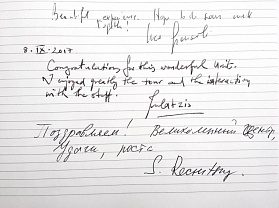 Beautiful experience. Hope to do soon
8.IX.2017
Congratulations for this wonderful visit.
I enjoyed greatly the tour and the interaction
with the staff.
Поздравляем! Великолепный
Удачи, роста
S.